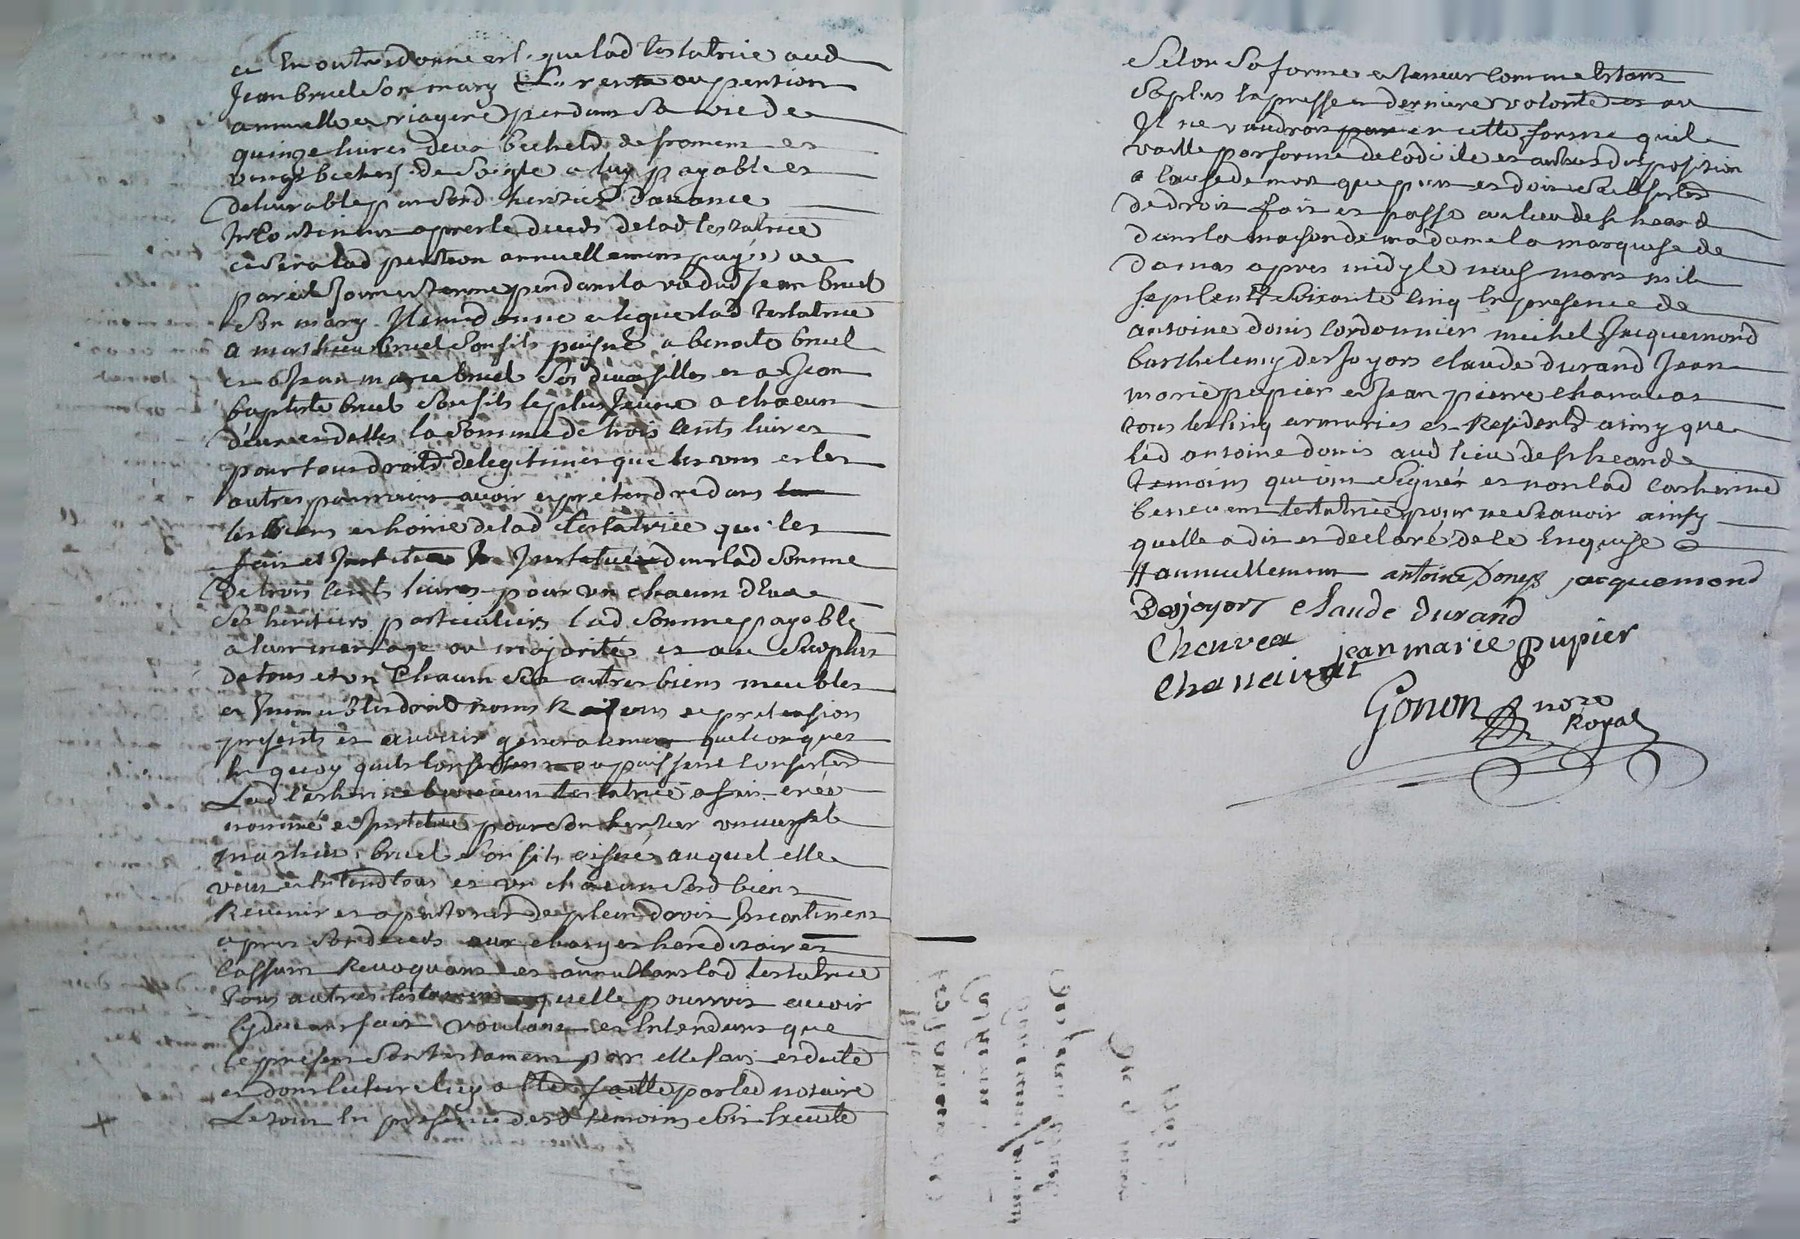 et En outre donne et legue lad testatrice aud
Jean bruel son mary une rente ou pention
annuelle et viagere pendant sa vie de
quinze livres deux bichets de froment et
vingt bichets de seigle a luy payable et
delivrable par sond heritier d'avance
Incontinent apres le deceds de lad testatrice
et sera lad pention annuellement payée de
pareil Jour et terme pendant la vie dud Jean bruel
son mary Item donne et legue lad testatrice
a mathieu bruel son fils puisné a benoite bruel
et a Jeanne marie bruel ses deux filles et a Jean
baptiste bruel son fils le plus Jeune a chacun
d'eux et d'elles la somme de trois cents livres
pour tous droits de legitimes que les uns et les
autres pourroient avoir et prétendre dans
les biens et hoirie de lad testatrice qui les
fait et Institue dans lad somme
De trois cents livres pour un chacun d'eux
ses heritiers particuliers lad somme payable
a leur mariage ou majorité et au surplus
de tous et un Chacun ses autres biens meubles
et Immeubles droits noms Raisons et prétension
présents et avenir generalement quelconques
En quoy qu'ils consistent ou puissent consister
Lad Catherine benevent testatrice a fait créé
nommé et Institué pour son heritier universel
mathieu bruel son fils aisné auquel elle
veut et Entend tous et un chacun sesd biens
Revenir et apartenir de plein droit Incontinent
apres son deceds aux charges hereditaires
Cassant Revoquant et annullant lad testatrice
Tous autres testaments quelle pourroit avoir
Cy devant fait voulant et Entendant que
le présent son testament par elle fait et dicté
et dont lecture luy a été faitte par led notaire
Le tout En présence desd témoins soit Executé
Selon sa forme et teneur comme Estant
sa plus Expresse et derniere volonté et ou
Il ne vaudroit en cette forme quil
vaille par forme de codicile et autre disposition
a cause de mort que peut et doit subsister
De droit fait et passé au lieu de st heand
Dans la maison de madame la marquise de
Damas apres midy le neuf mars mil
sept cents soixante cinq En presence de
antoine donis cordonnier michel Jacquemond
barthelemy desJoyors claude durand Jean
marie pupier et Jean pierre chanavat
tous les cinq armuriers et Residents ainsy que
led antoine donis aud lieu de st heand
temoins qui ont signés et non lad Catherine
benevent testatrice pour ne sçavoir ainsy
quelle a dit et declaré de ce Enquise
# annuellement antoine Donys jacquemond
Desjoyors claude durand
jean marie pupier
Chanavat
Gonon
Royal